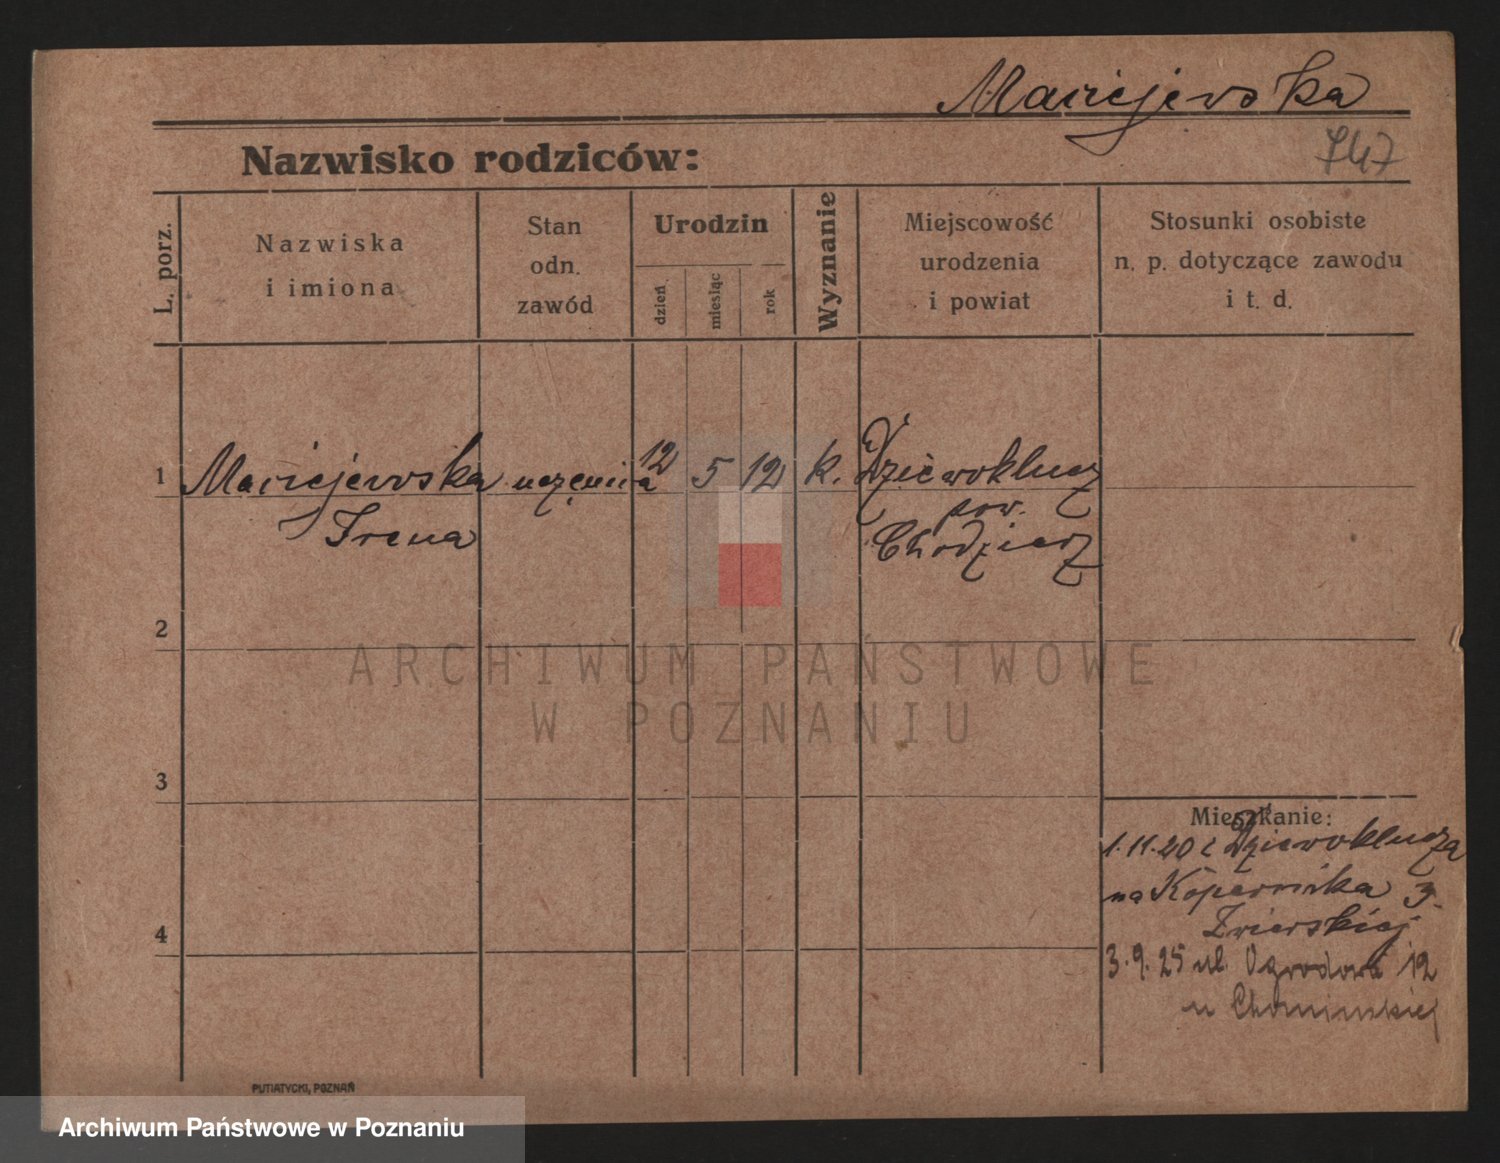 Maciejewska
747
Nazwisko rodziców:
L. porz.
Nazwiska
i imiona
Stan
odn.
zawód
Urodzin
dzień
miesiąc
rok
Wyznanie
Miejscowość
urodzenia
i powiat
Stosunki osobiste
n. p. dotyczące zawodu
i t. d.
1 Maciejewska uczenica 12 5 12 k. Dziewoklucz
Irena pow.
Chodzież
2
ARCHIWUM PAŃSTWOWE
W POZNANIU
3
Mieszkanie:
1.11.20 z Dziewoklucza
na Kopernika 3.
Zwierskiej
4
3.9.25 ul. Ogrodowa 12
u Chomińskiej
PUTIATYCKI, POZNAŃ
Archiwum Państwowe w Poznaniu